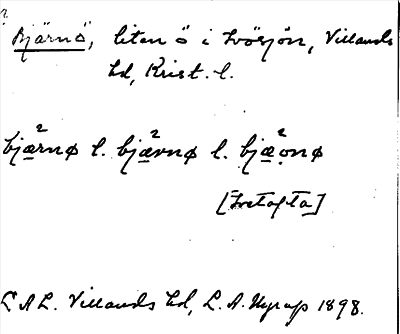 Bjärnö, liten ö i Ivösjön, Villands
hd, Krist. l.
bjæ²rnø l. bjæ²vnø l. bjæ²ọnø
[Ivetofta]
LAL. Villands hd, L. A. Nyrup 1898.